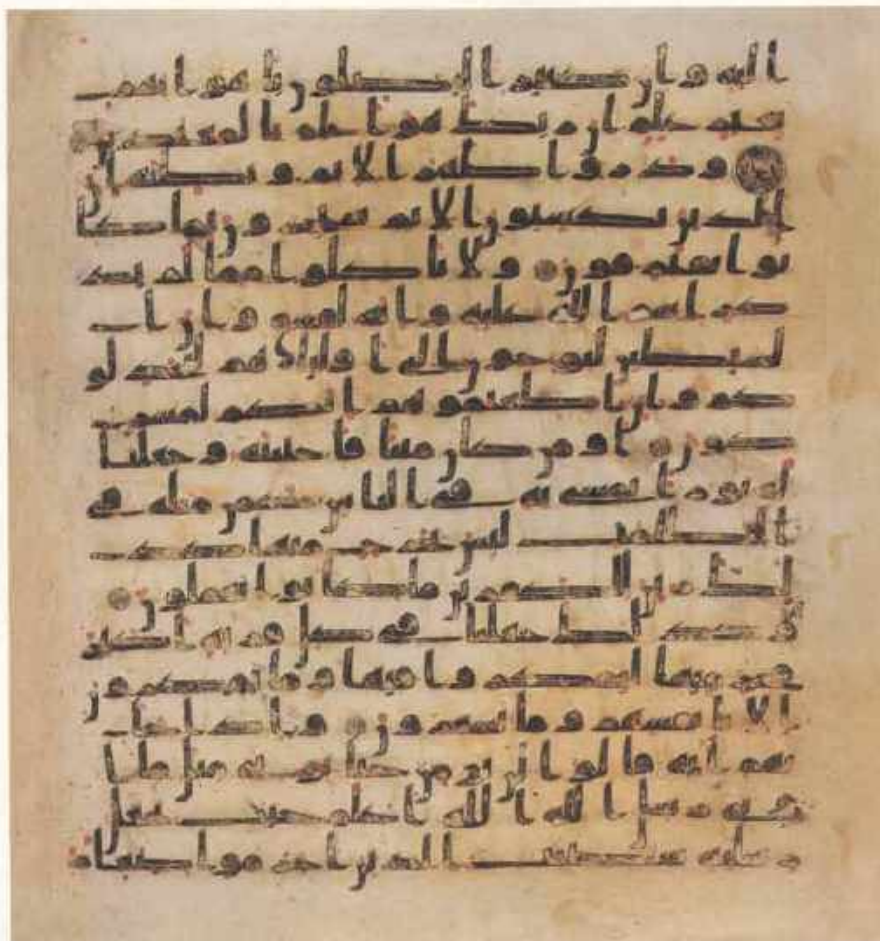 اليه وان كثيرا ليضلون باهوائهم
بغير علم ان ربك هو اعلم بالمعتدين
وذروا ظهر الاثم وبطنه ان
الذين يكسبون الاثم سيجزون بما كا
نوا يقترفون ولا تاكلوا مما لم يذ
كر اسم الله عليه وانه لفسق وان ا
لشيطين ليوحون الى اوليائهم ليجدلو
كم وان اطعتموهم انكم لمشر
كون اومن كان ميتا فاحيينه وجعلنا
له نورا يمشي به في الناس كمن مثله في
الظلمت ليس بخرج منها كذلك
زين للكفرين ما كانوا يعملون
وكذلك جعلنا في كل قرية اكبر
مجرميها ليمكروا فيها وما يمكرون
الا بانفسهم وما يشعرون واذا جا
تهم اية قالوا لن نومن حتى نوتى مثل ما ا
وتي رسل الله الله اعلم حيث يجعل
رسلته سيصيب الذين اجرموا صغار